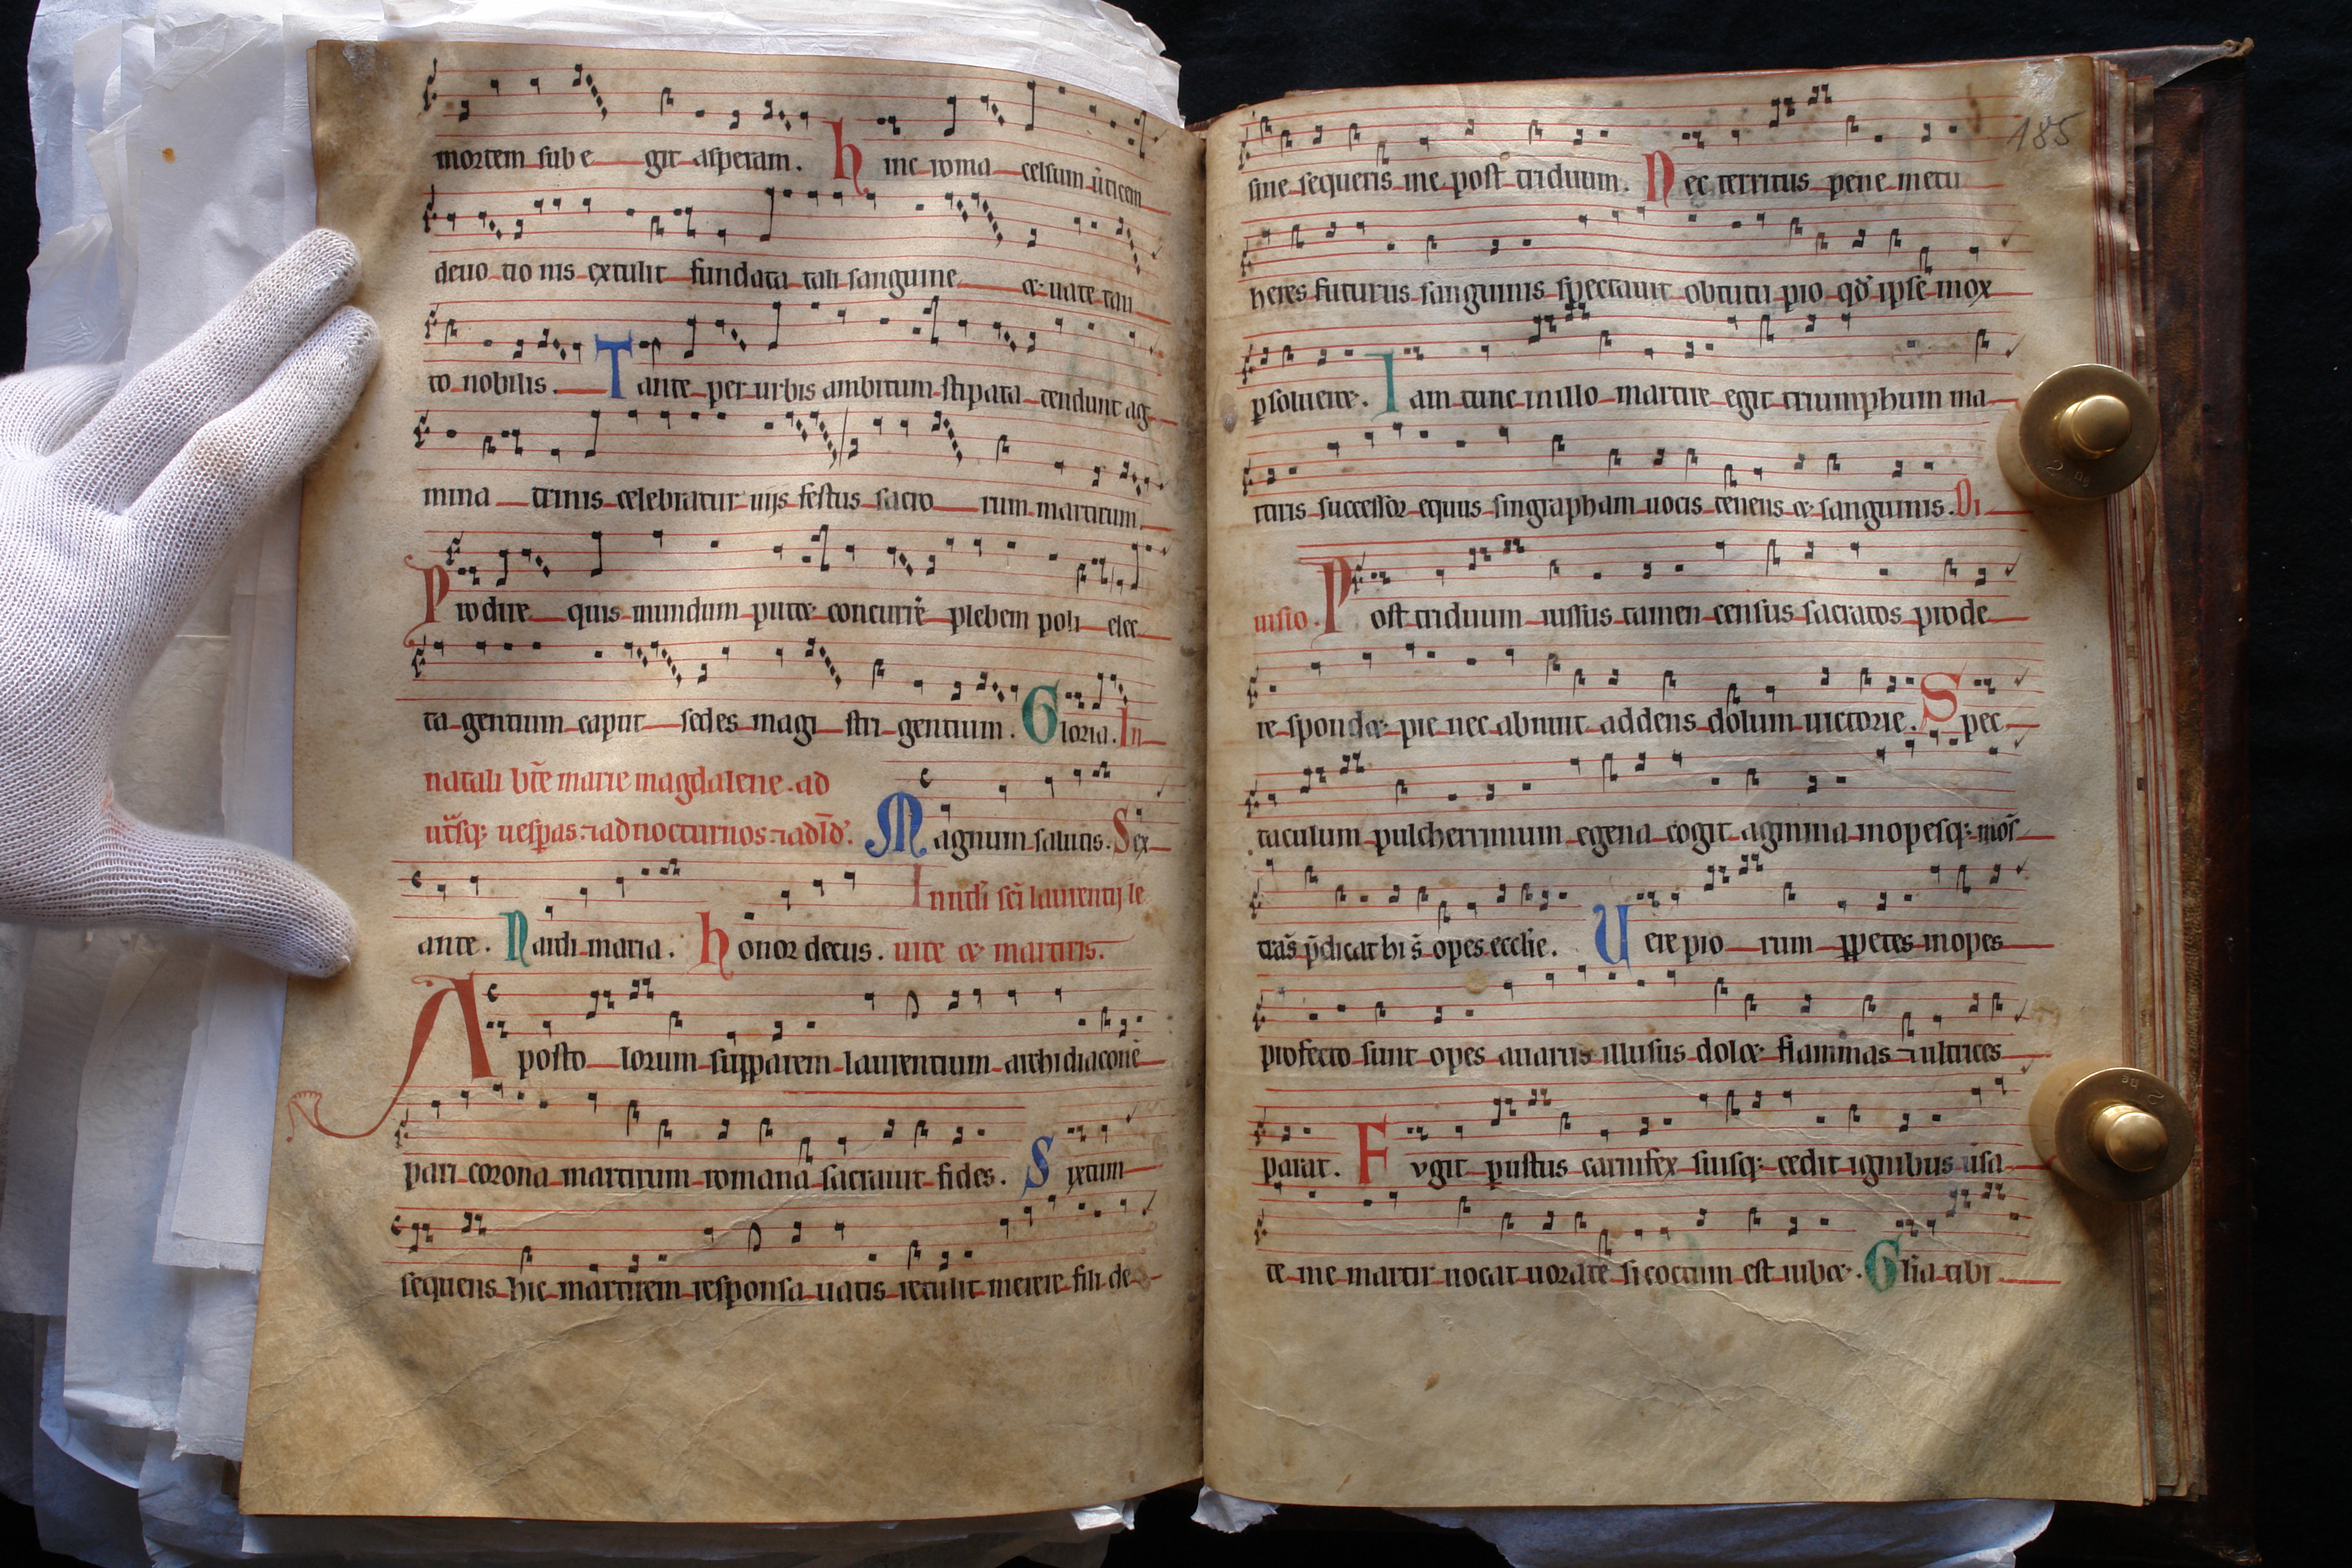 mortem sub e git asperam. hinc roma celsum ũticem
deuo tio nis extulit fundata tali sanguine et uate tan
to nobilis. Tante per urbis ambitum stipata tendunt ag
mina trinis celebratur uijs festus sacro rum martirum
Prodire quis mundum putet concurrẽ plebem poli elec
ta gentium caput sedes magi stri gentium. Gloria. In
natali bt̃e marie magdalene. ad
ut̃sq; uesp̃as. ⁊ ad nocturnos. ⁊ ad lđ. Magnum salutis. Sex
ante. Nardi maria. honor decus. In nat̃li sc̃i laurentij le
uite et martiris.
Aposto lorum supparem laurentium archidiaconũ
pari corona martirum romana sacrauit fides. Sixtum
sequens hic martirem responsa uatis retulit merere fili de
185
sine sequeris me post triduum. Nec territus pene metu
heres futurus sanguinis spectauit obtutu pio qđ ipse mox
psolueret. Iam tunc in illo martire egit triumphum ma
rtiris successor equus singrapham uocis tenens et sanguinis. Di
uisio. Post triduum iussus tamen census sacratos prode
re spondet pie nec abnuit addens dolum uictorie. Spec
taculum pulcherrimum egena cogit agmina inopesq; mõs
trãs p̃dicat hi s̃ opes eccl̃ie. Uere pio rum ppetes inopes
profecto sunt opes auarus illusus dolet flammas ⁊ ultrices
parat. Fvgit pustus carnifex suisq; cedit ignibus ũsa
te me martir uocat uorate si coctum est iubet. Gl̃ia tibi